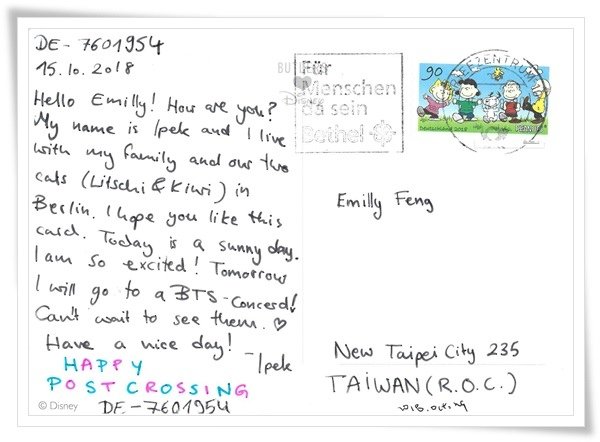 DE-7601954
15.10.2018
Hello Emilly! How are you?
My name is Ipek and I live
with my family and our two
cats (Litschi & Kiwi) in
Berlin. I hope you like this
card. Today is a sunny day.
I am so excited! Tomorrow
I will go to a BTS-Concerd!
Can't wait to see them. ♡
Have a nice day!
-Ipek
HAPPY
POSTCROSSING
© Disney
DE-7601954
Für
Menschen
da sein
Bethel
Disney
90
Deutschland 2018
PEANUTS
Emilly Feng
New Taipei City 235
TAIWAN (R.O.C.)